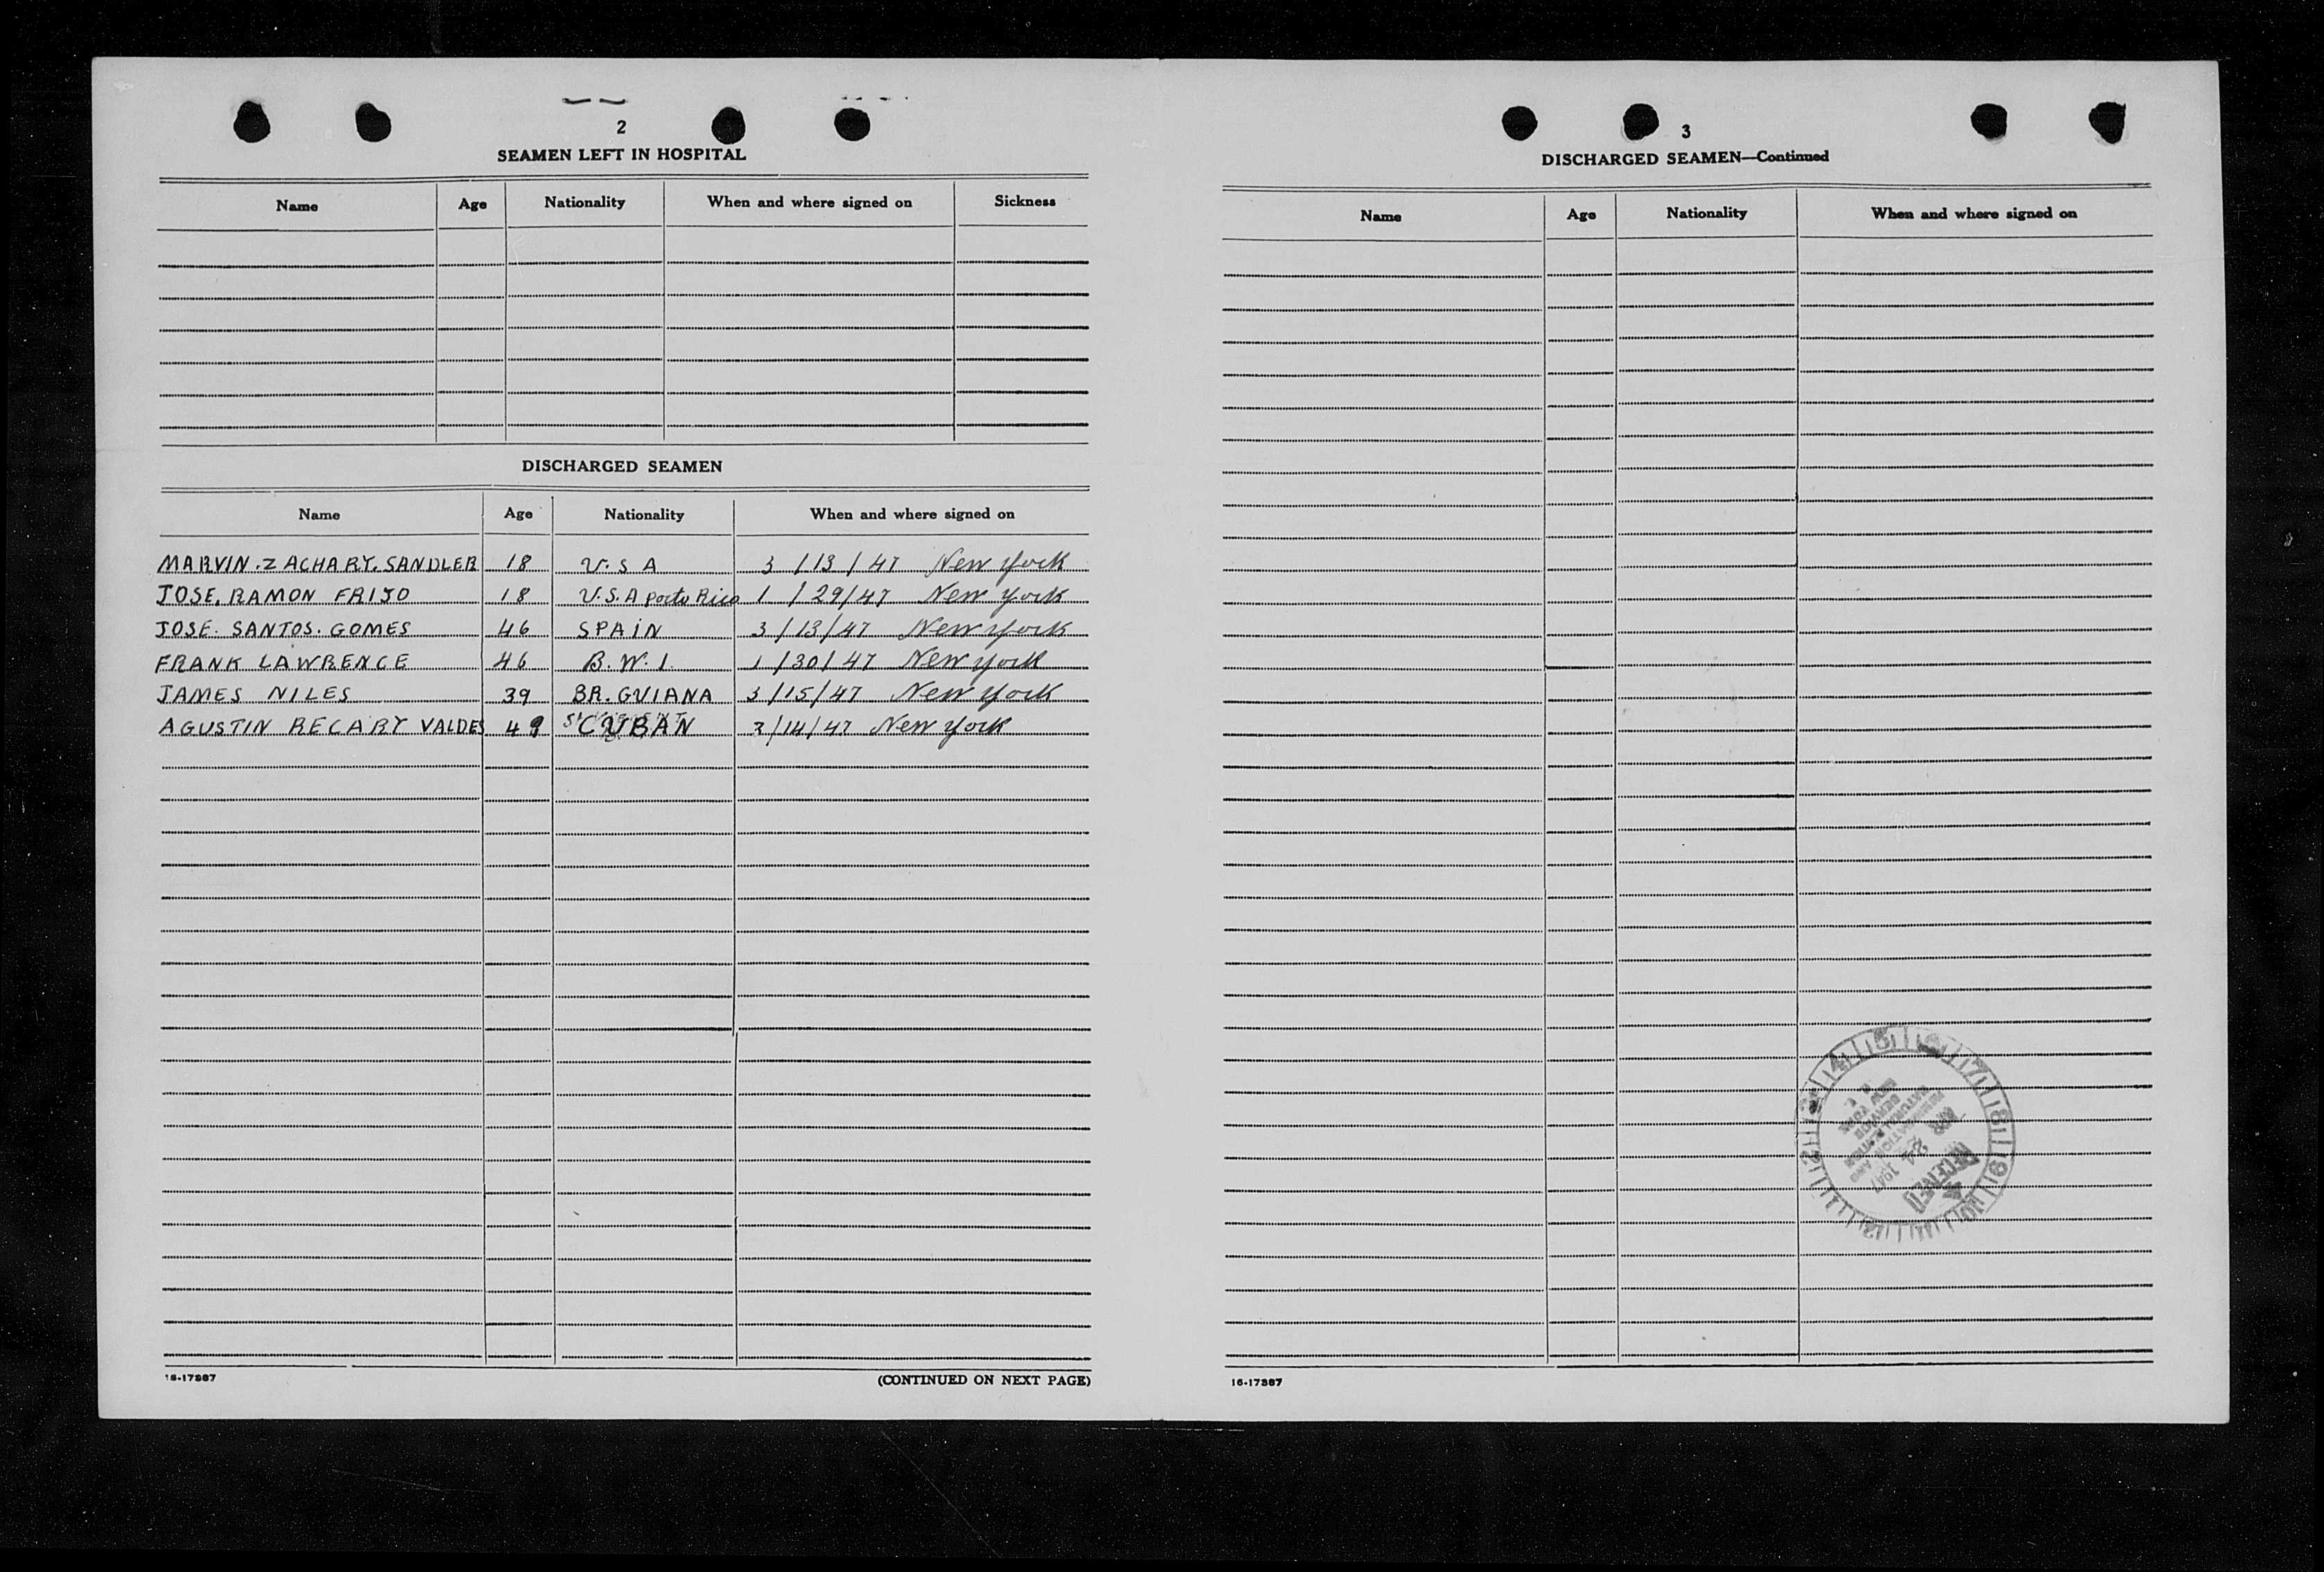 2
SEAMEN LEFT IN HOSPITAL
Name Age Nationality When and where signed on Sickness
DISCHARGED SEAMEN
Name Age Nationality When and where signed on
MARVIN. ZACHARY. SANDLER 18 U.S A 3 /13 / 47 New York
JOSE. RAMON FRIJO 18 U.S.A Porto Rico 1 / 29/47 New York
JOSE. SANTOS. GOMES 46 SPAIN 3/13/47 New York
FRANK LAWRENCE 46 B.W.I. 1/30/47 New York
JAMES NILES 39 BR. GUIANA 3/15/47 New York
AGUSTIN RECARY VALDES 49 CUBAN 3/14/47 New York
16-17387
(CONTINUED ON NEXT PAGE)
3
DISCHARGED SEAMEN—Continued
Name Age Nationality When and where signed on
RECEIVED
APR 24 1947
IMMIGRATION AND
NATURALIZATION
SERVICE
NEW YORK
16-17387